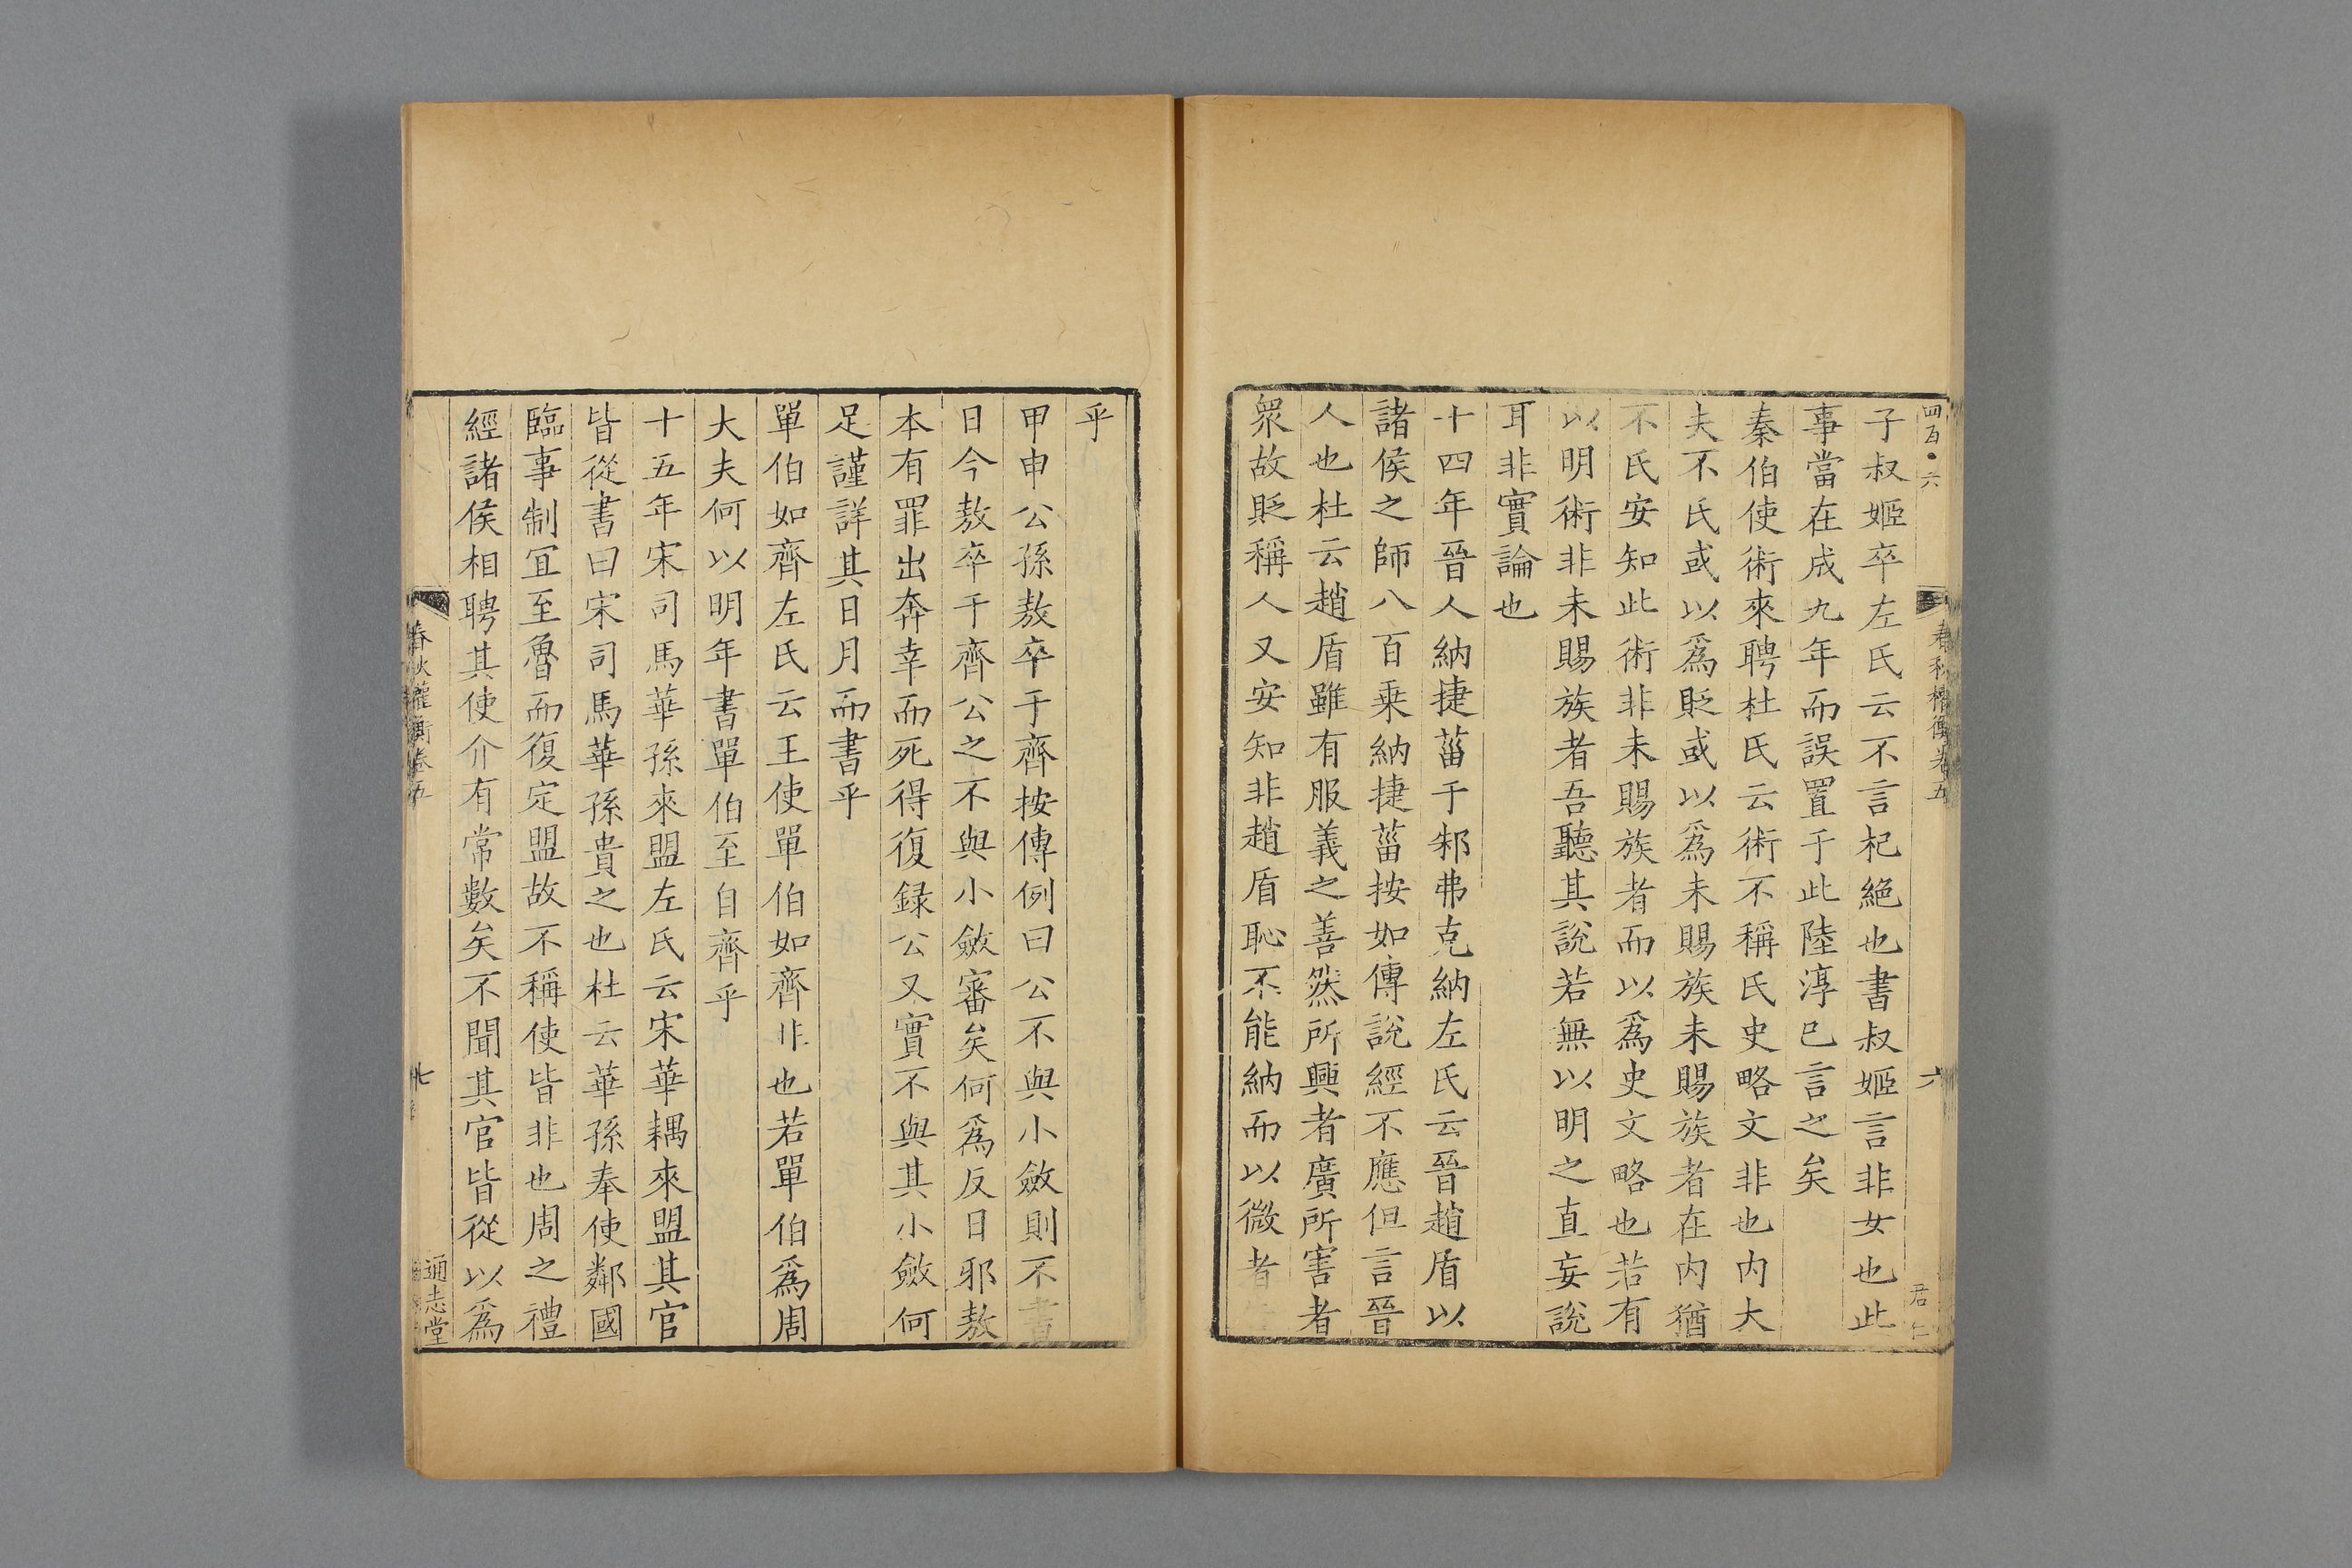 四百六
春秋權衡卷五
六
君仁
子叔姬卒左氏云不言杞絕也書叔姬言非女也此
事當在成九年而誤置于此陸淳已言之矣
秦伯使術來聘杜氏云術不稱氏史略文非也内大
夫不氏或以爲貶或以爲未賜族未賜族者在内猶
不氏安知此術非未賜族者而以爲史文略也若有
以明術非未賜族者吾聽其說若無以明之直妄說
耳非實論也
十四年晉人納捷菑于邾弗克納左氏云晉趙盾以
諸侯之師八百乗納捷菑按如傳說經不應但言晉
人也杜云趙盾雖有服義之善然所興者廣所害者
衆故貶稱人又安知非趙盾恥不能納而以微者
乎
甲申公孫敖卒于齊按傳例曰公不與小斂則不書
日今敖卒于齊公之不與小斂審矣何爲反日邪敖
本有罪出奔幸而死得復録公又實不與其小斂何
足謹詳其日月而書乎
單伯如齊左氏云王使單伯如齊非也若單伯爲周
大夫何以明年書單伯至自齊乎
十五年宋司馬華孫來盟左氏云宋華耦來盟其官
皆從書曰宋司馬華孫貴之也杜云華孫奉使鄰國
臨事制宜至魯而復定盟故不稱使皆非也周之禮
經諸侯相聘其使介有常數矣不聞其官皆從以爲
春秋權衡卷五
七
通志堂